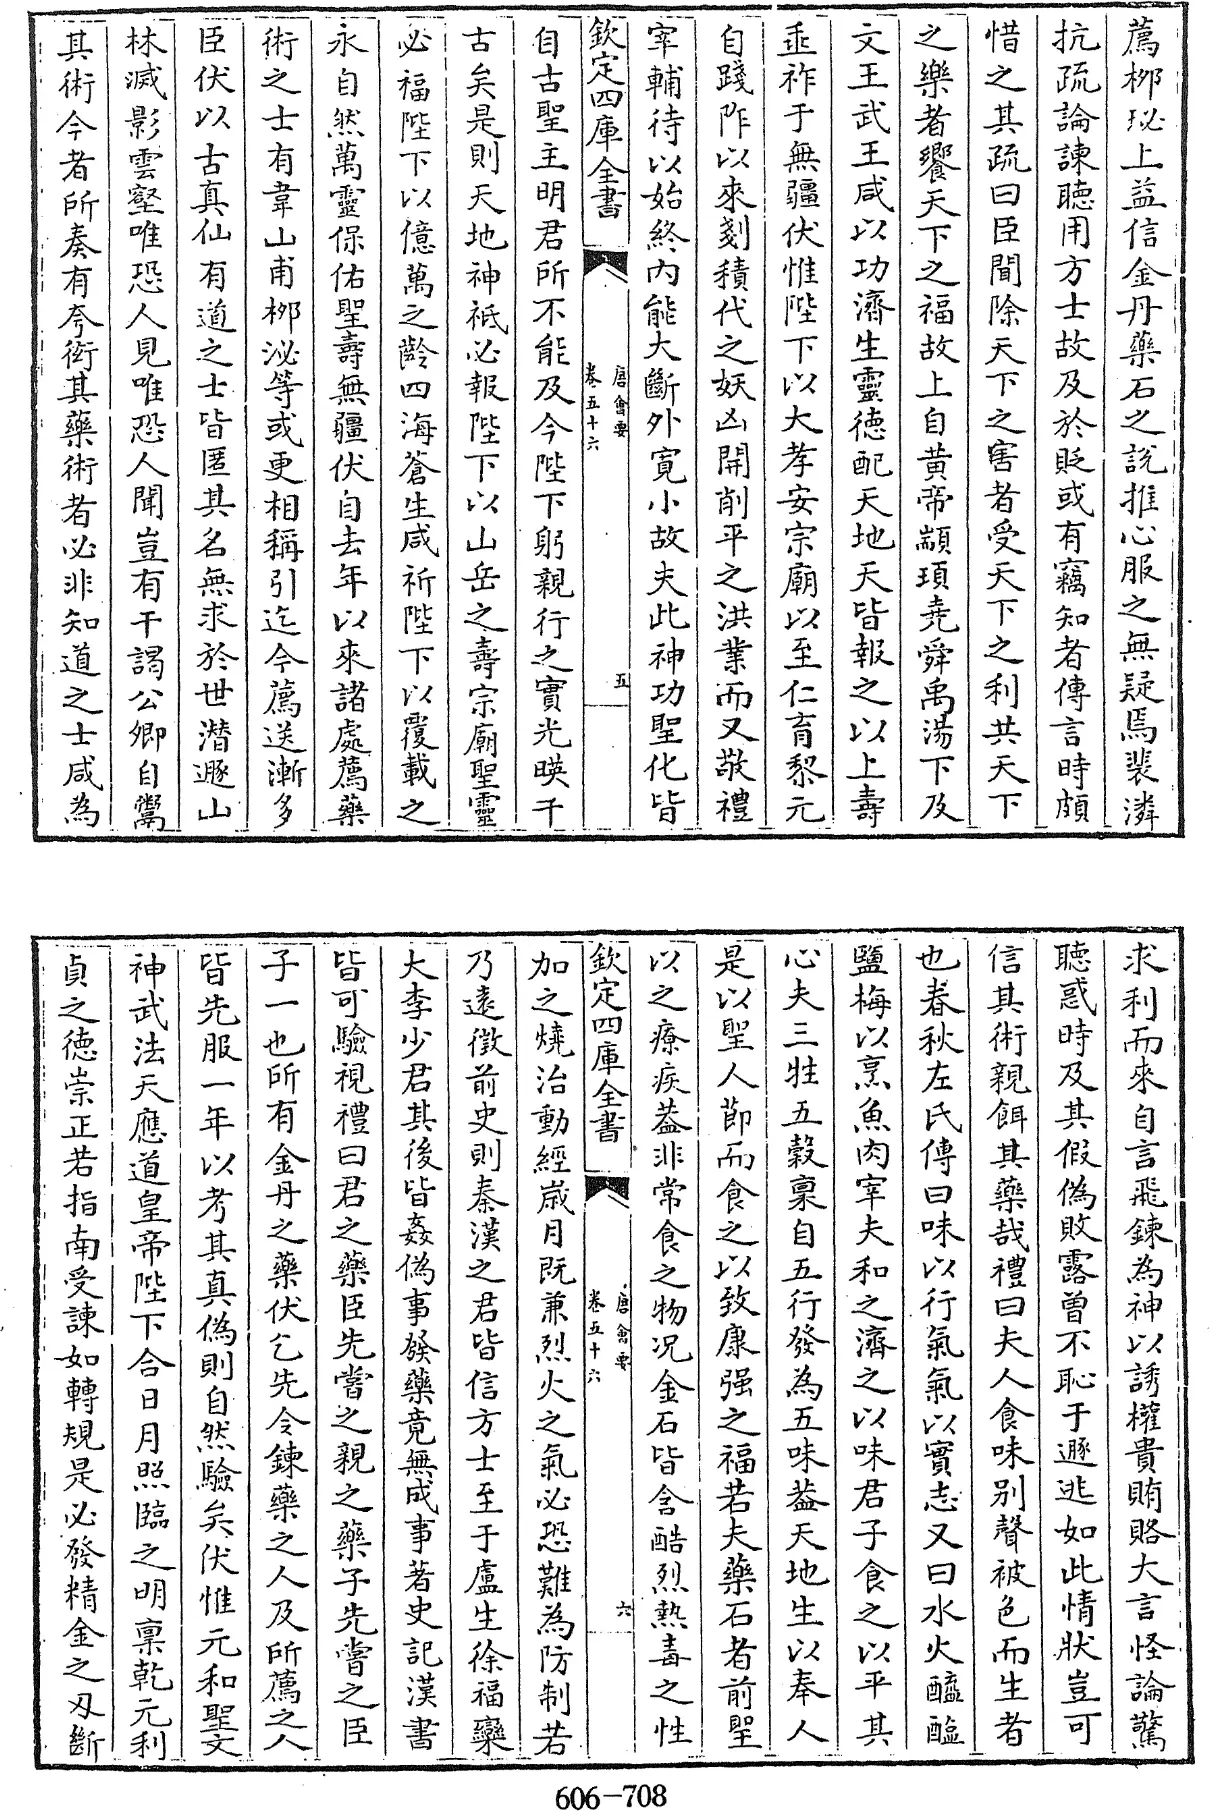 薦栁泌上益信金丹藥石之說推心服之無疑焉裴潾
抗疏論諫聽用方士故及於貶或有竊知者傳言時頗
惜之其疏曰臣聞除天下之害者受天下之利共天下
之樂者饗天下之福故上自黄帝顓頊堯舜禹湯下及
文王武王咸以功濟生靈德配天地天皆報之以上壽
垂祚于無疆伏惟陛下以大孝安宗廟以至仁育黎元
自踐阼以來剗積代之妖凶開削平之洪業而又敬禮
宰輔待以始終内能大斷外寛小故夫此神功聖化皆
欽定四庫全書
唐會要
卷五十六
五
自古聖主明君所不能及今陛下躬親行之實光暎千
古矣是則天地神祗必報陛下以山岳之壽宗廟聖靈
必福陛下以億萬之齡四海蒼生咸祈陛下以覆載之
永自然萬靈保佑聖壽無疆伏自去年以來諸處薦藥
術之士有韋山甫栁泌等或更相稱引迄今薦送漸多
臣伏以古真仙有道之士皆匿其名無求於世潛遯山
林滅影雲壑唯恐人見唯恐人聞豈有干謁公卿自鬻
其術今者所奏有夸衒其藥術者必非知道之士咸為
求利而來自言飛鍊為神以誘權貴賄賂大言怪論驚
聽惑時及其假偽敗露曾不恥于遯逃如此情狀豈可
信其術親餌其藥哉禮曰夫人食味別聲被色而生者
也春秋左氏傳曰味以行氣氣以實志又曰水火醯醢
鹽梅以烹魚肉宰夫和之濟之以味君子食之以平其
心夫三牲五穀稟自五行發為五味葢天地生以奉人
是以聖人節而食之以致康强之福若夫藥石者前聖
以之療疾葢非常食之物况金石皆含酷烈熱毒之性
欽定四庫全書
唐會要
卷五十六
六
加之燒治動經歲月既兼烈火之氣必恐難為防制若
乃遠徵前史則秦漢之君皆信方士至于盧生徐福欒
大李少君其後皆姦偽事發藥竟無成事著史記漢書
皆可驗視禮曰君之藥臣先嘗之親之藥子先嘗之臣
子一也所有金丹之藥伏乞先令鍊藥之人及所薦之人
皆先服一年以考其真偽則自然驗矣伏惟元和聖文
神武法天應道皇帝陛下合日月照臨之明稟乾元利
貞之德崇正若指南受諫如轉規是必發精金之刃斷
606-708